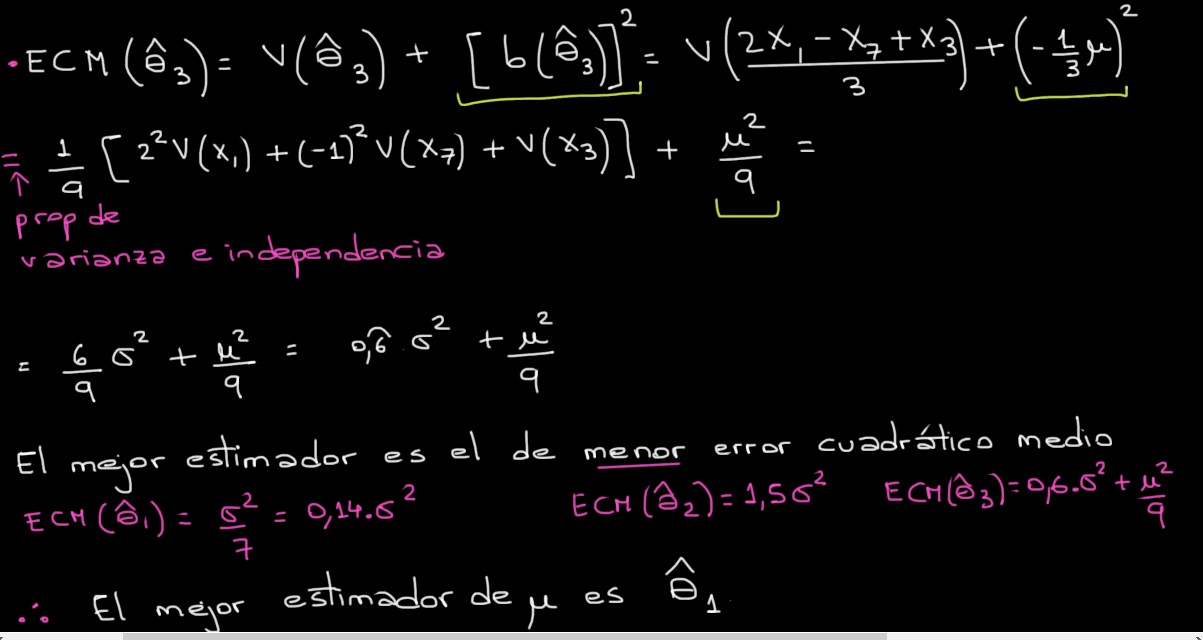 • ECM(θ̂₃) = V(θ̂₃) + [b(θ̂₃)]² = V((2x₁ - x₇ + x₃)/3) + (-1/3 μ)²
= 1/9 [2²V(x₁) + (-1)²V(x₇) + V(x₃)] + μ²/9 =
↑
prop de
varianza e independencia
= 6/9 σ² + μ²/9 = 0,6̂ . σ² + μ²/9
El mejor estimador es el de menor error cuadrático medio
ECM(θ̂₁) = σ²/7 = 0,14.σ² ECM(θ̂₂) = 1,5σ² ECM(θ̂₃) = 0,6.σ² + μ²/9
∴ El mejor estimador de μ es θ̂₁